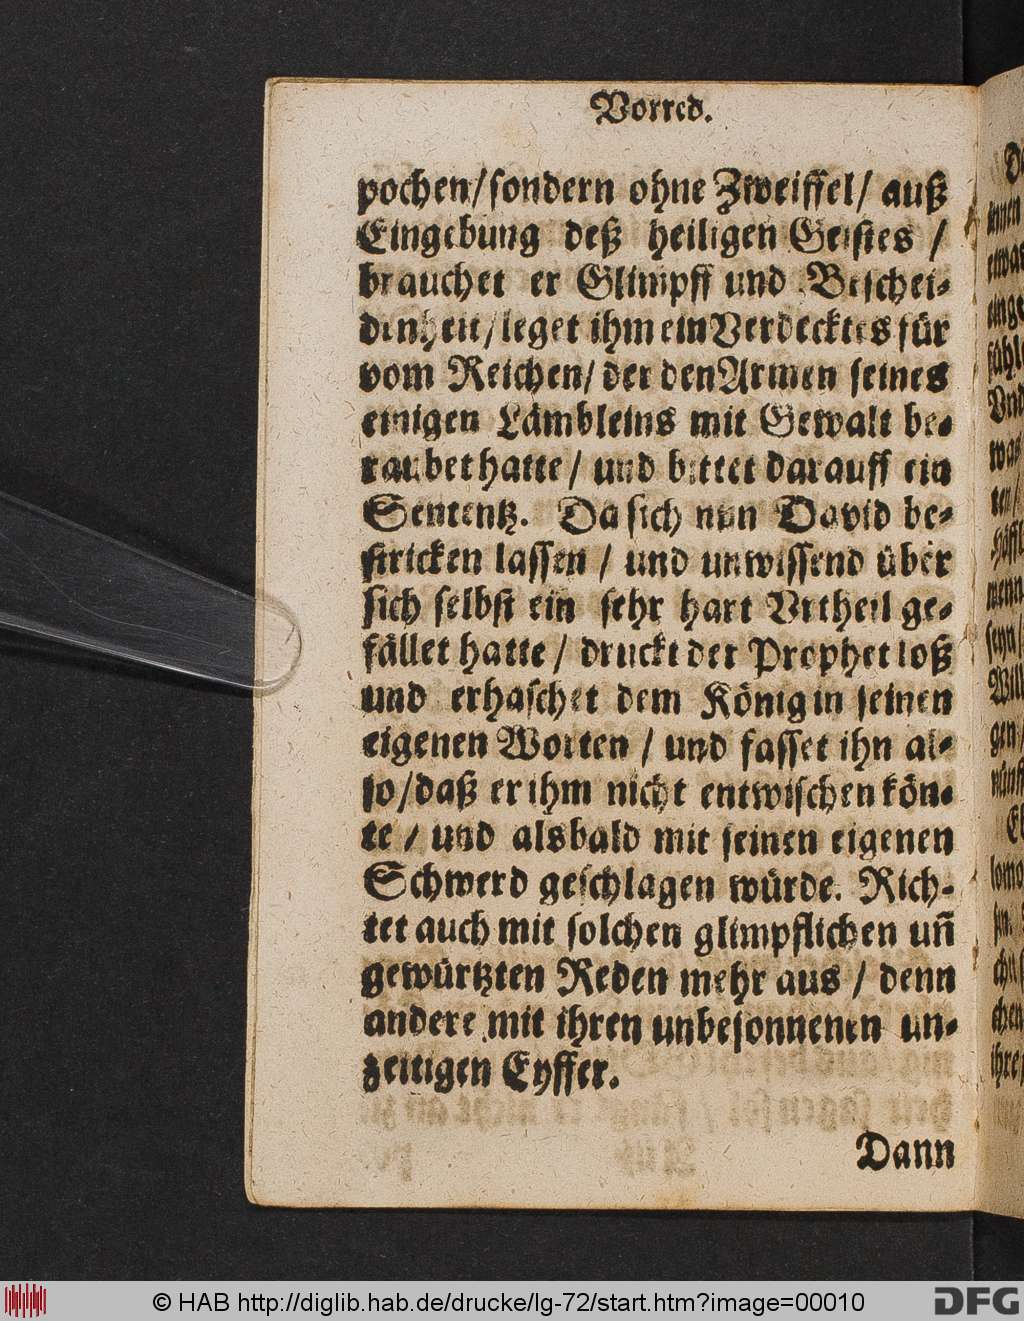 Vorred.
pochen/ sondern ohne Zweiffel/ auß
Eingebung deß heiligen Geistes /
brauchet er Glimpff und Beschei-
denheit/ leget ihm ein Verdecktes für
vom Reichen/ der den Armen seines
einigen Lämbleins mit Gewalt be-
raubet hatte / und bittet darauff ein
Sententz. Da sich nun David be-
stricken lassen / und unwissend über
sich selbst ein sehr hart Vrtheil ge-
fället hatte / druckt der Prophet loß
und erhaschet dem König in seinen
eigenen Worten / und fasset ihn al-
so/ daß er ihm nicht entwischen kön-
te / und alsbald mit seinen eigenen
Schwerd geschlagen würde. Rich-
tet auch mit solchen glimpflichen uñ
gewürtzten Reden mehr aus / denn
andere mit ihren unbesonnenen un-
zeitigen Eyffer.
Dann
© HAB http://diglib.hab.de/drucke/lg-72/start.htm?image=00010
DFG